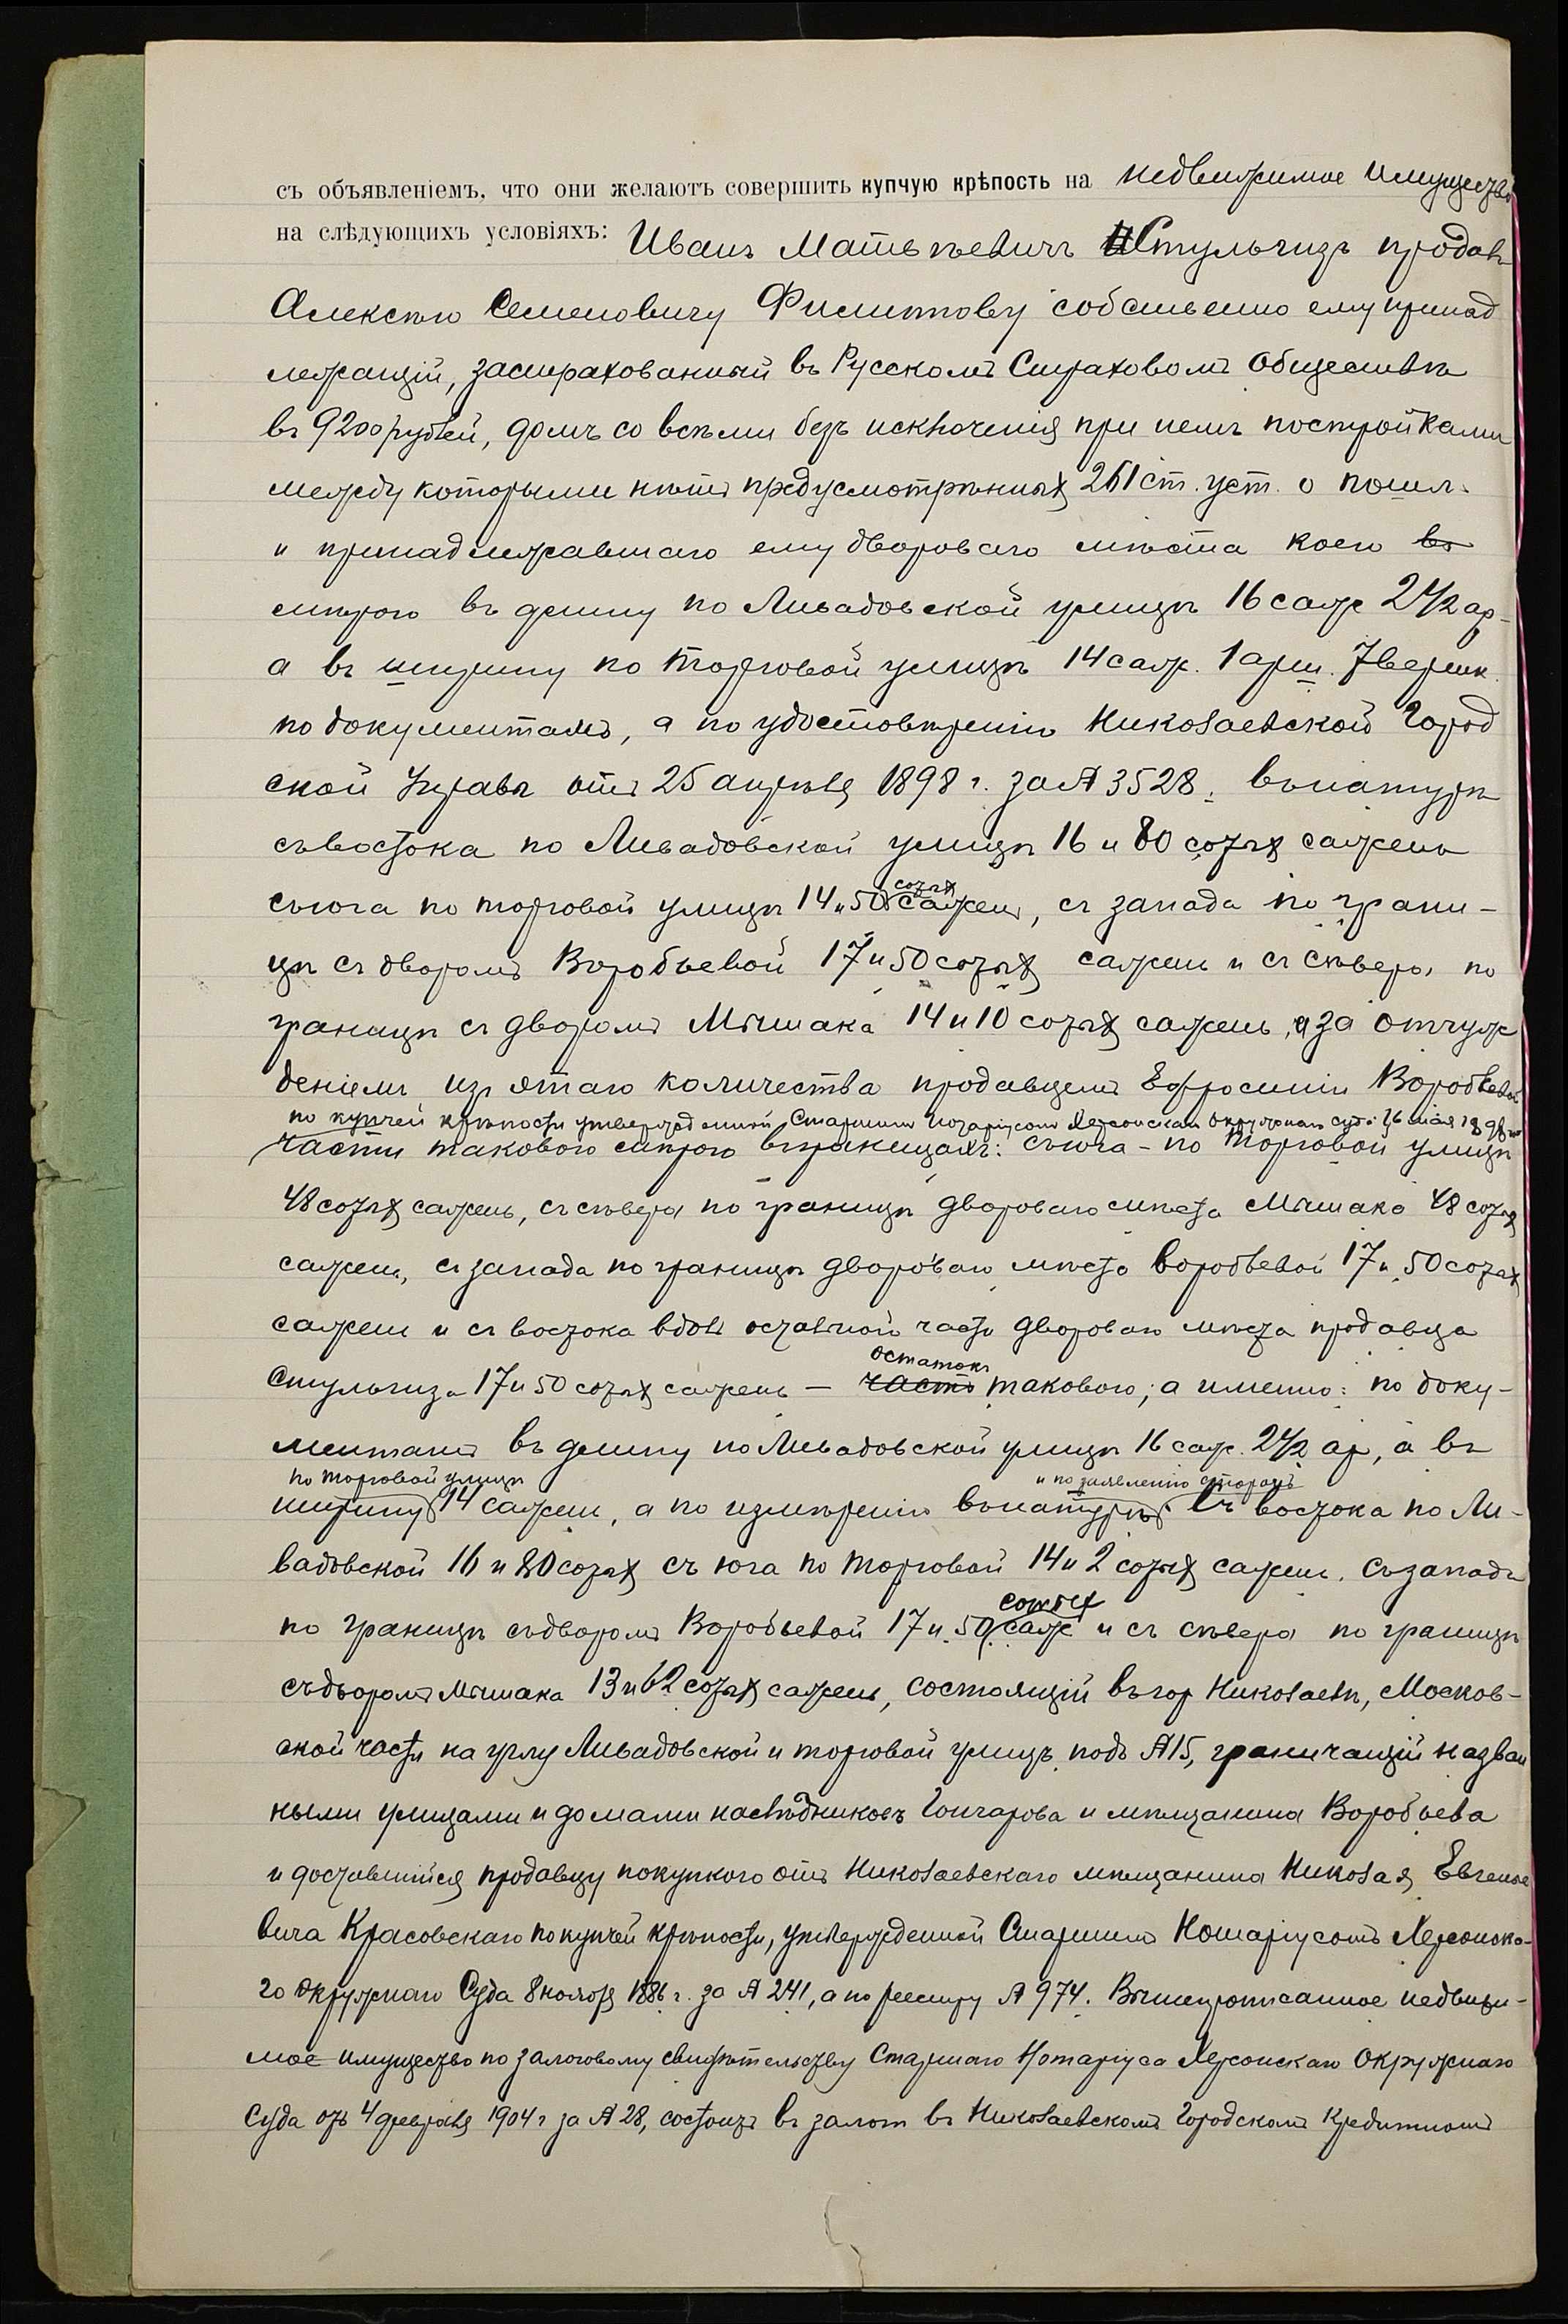 съ объявленіемъ, что они желаютъ совершить купчую крѣпость на недвижимое имущество
на слѣдующихъ условіяхъ: Иванъ Матвѣевичъ Стульгизъ продалъ
Алексѣю Семеновичу Филиппову собственно ему принад
лежащій, застрахованный въ Русскомъ Страховомъ Обществѣ
въ 9200 рублей, домъ со всѣми безъ исключенія при немъ постройками
между которыми нѣтъ предусмотрѣнныхъ 261 ст. уст. о пошл.
и принадлежавшаго ему дворового мѣста коего въ
мѣрою въ длину по Ливадовской улицѣ 16 саж 2 1/2 ар-
а въ ширину по Торговой улицѣ 14 саж. 1 арш. 7 вершк.
по документамъ, а по удостовѣренію Николаевской Город
ской Управы отъ 25 апрѣля 1898 г. за № 3528. въ натурѣ
съ востока по Ливадовской улицѣ 16 и 80 сотыхъ сажень
сотыхъ
съ юга по торговой улицѣ 14 и 50 сажень, съ запада по грани-
цѣ съ дворомъ Воробьевой 17 и 50 сотыхъ сажень и съ сѣвера по
границѣ съ дворомъ Мѣшака 14 и 10 сотыхъ сажень, а за отчуж
деніемъ изъ этаго количества продавцемъ Ефросиніи Воробьевой
по купчей крѣпости утвержденной Старшимъ Нотаріусомъ Херсонскаго Окружнаго Суда 26 мая 1898 г.
части таковаго мѣрою въ границахъ: съ юга - по Торговой улицѣ
48 сотыхъ сажень, съ сѣвера по границѣ двороваго мѣста Мѣшака 48 сотыхъ
сажень, съ запада по границѣ двороваго мѣста Воробьевой 17 и 50 сотыхъ
сажень и съ востока вдоль остальной части двороваго мѣста продавца
остатокъ
Стульгиза 17 и 50 сотыхъ сажень — часть таковаго; а именно: по доку-
ментамъ въ длину по Ливадовской улицѣ 16 саж. 2 1/2 ар, а въ
по торговой улицѣ и по заявленію сторонъ
ширину 14 сажень, а по измѣренію въ натурѣ съ востока по Ли-
вадовской 16 и 80 сотыхъ съ юга по Торговой 14 и 2 сотыхъ сажень. Съ запада
сотыхъ
по границѣ съ дворомъ Воробьевой 17 и 50 саж и съ сѣвера по границѣ
съ дворомъ Мѣшака 13 и 62 сотыхъ сажень, состоящій въ гор Николаевѣ, Москов-
ской части на углу Ливадовской и торговой улицъ подъ № 15, граничащій назван
ными улицами и домами наслѣдниковъ Гончарова и мѣщанина Воробьева
и доставшійся продавцу покупкою отъ Николаевскаго мѣщанина Николая Евгенье
вича Красовскаго по купчей крѣпости, утвержденной Старшимъ Нотаріусомъ Херсонска-
го Окружнаго Суда 8 ноября 1886 г. за № 241, а по реестру № 974. Вышеупомянутое недвижи-
мое имущество по залоговому свидѣтельству Старшаго Нотаріуса Херсонскаго Окружнаго
Суда отъ 4 февраля 1904 г за № 28, состоитъ въ залогѣ въ Николаевскомъ Городскомъ Кредитномъ